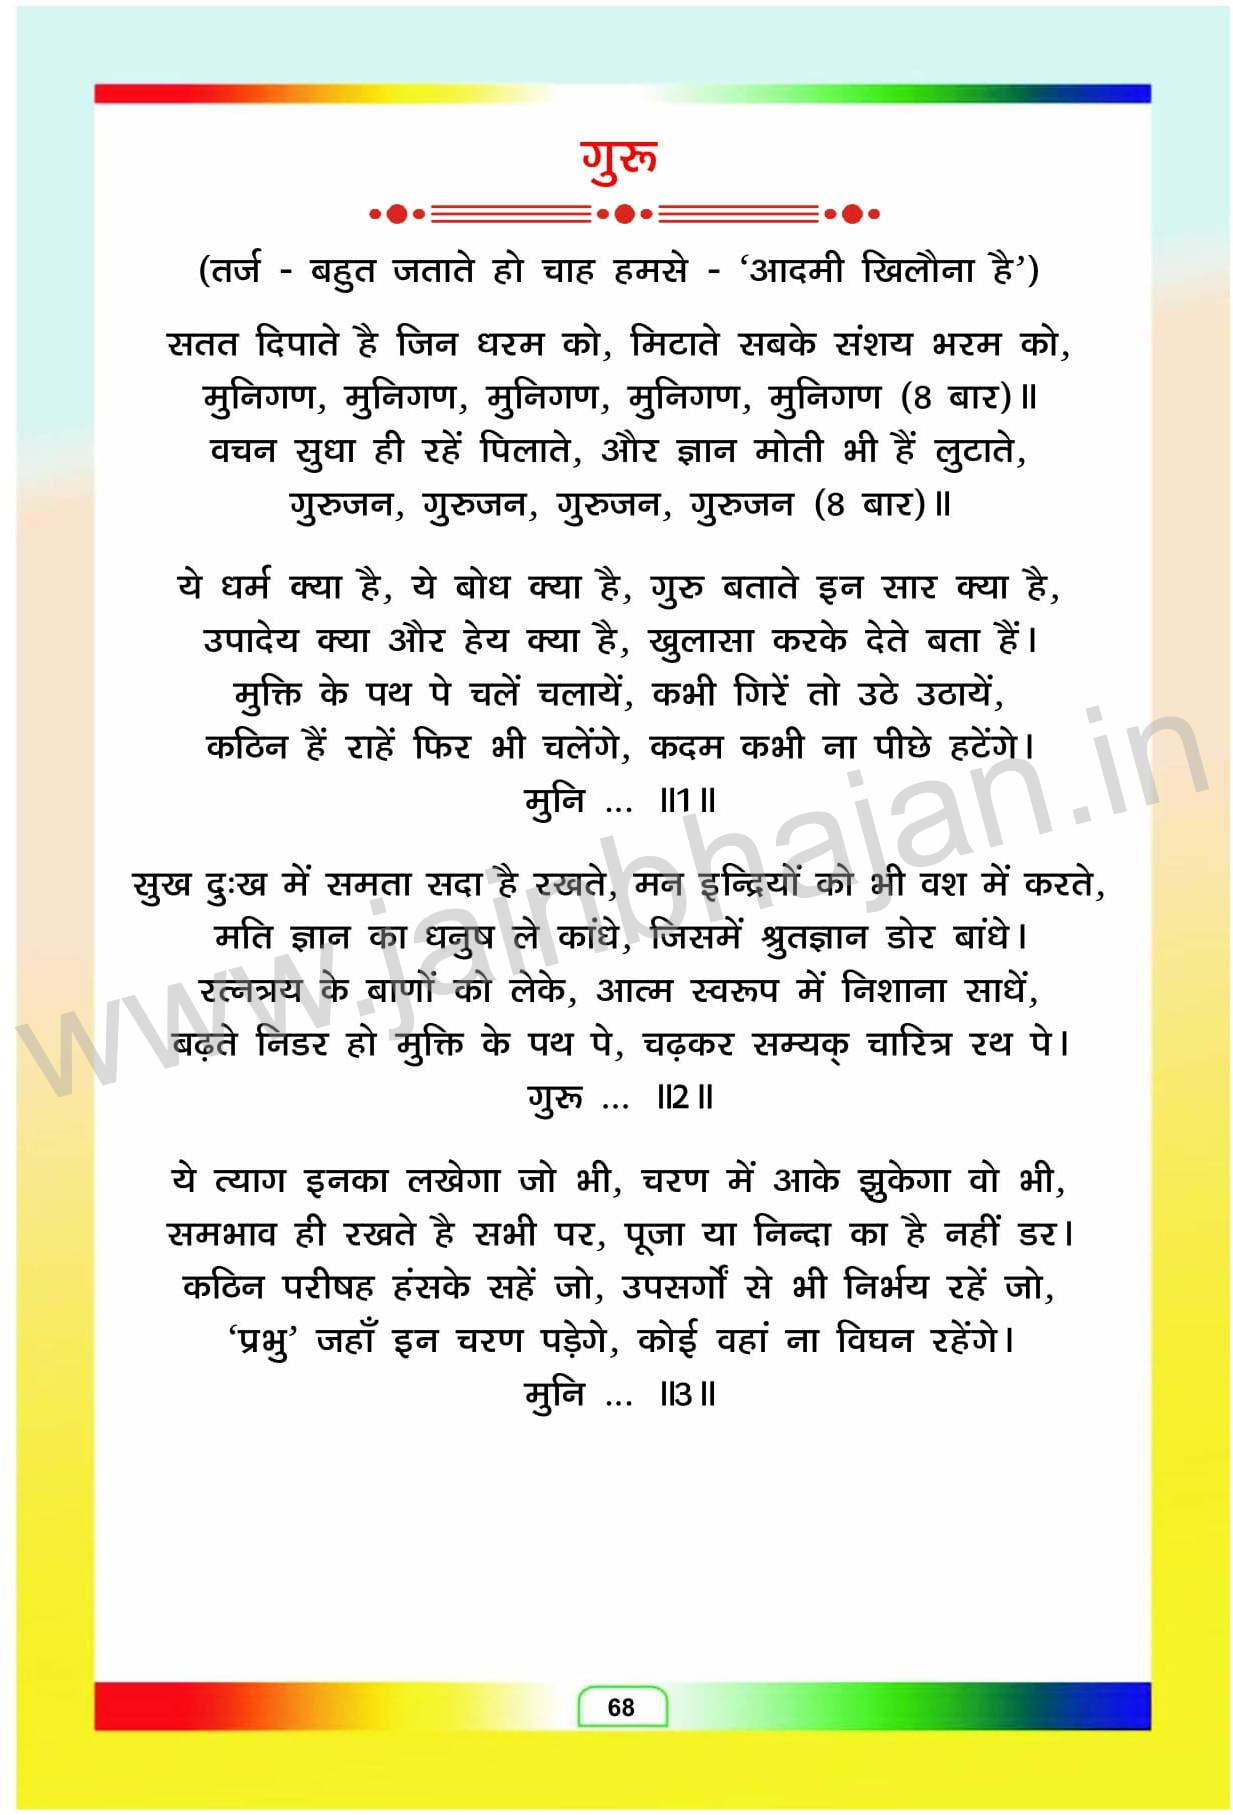 गुरू
(तर्ज - बहुत जताते हो चाह हमसे - ‘आदमी खिलौना है’)
सतत दिपाते है जिन धरम को, मिटाते सबके संशय भरम को,
मुनिगण, मुनिगण, मुनिगण, मुनिगण, मुनिगण (8 बार)॥
वचन सुधा ही रहें पिलाते, और ज्ञान मोती भी हैं लुटाते,
गुरुजन, गुरुजन, गुरुजन, गुरुजन (8 बार)॥
ये धर्म क्या है, ये बोध क्या है, गुरु बताते इन सार क्या है,
उपादेय क्या और हेय क्या है, खुलासा करके देते बता हैं।
मुक्ति के पथ पे चलें चलायें, कभी गिरें तो उठे उठायें,
कठिन हैं राहें फिर भी चलेंगे, कदम कभी ना पीछे हटेंगे।
मुनि ... ॥1॥
सुख दुःख में समता सदा है रखते, मन इन्द्रियों को भी वश में करते,
मति ज्ञान का धनुष ले कांधे, जिसमें श्रुतज्ञान डोर बांधे।
रत्नत्रय के बाणों को लेके, आत्म स्वरूप में निशाना साधें,
बढ़ते निडर हो मुक्ति के पथ पे, चढ़कर सम्यक् चारित्र रथ पे।
गुरू ... ॥2॥
ये त्याग इनका लखेगा जो भी, चरण में आके झुकेगा वो भी,
समभाव ही रखते है सभी पर, पूजा या निन्दा का है नहीं डर।
कठिन परीषह हंसके सहें जो, उपसर्गों से भी निर्भय रहें जो,
‘प्रभु’ जहाँ इन चरण पड़ेगे, कोई वहां ना विघन रहेंगे।
मुनि ... ॥3॥
www.jainbhajan.in
68